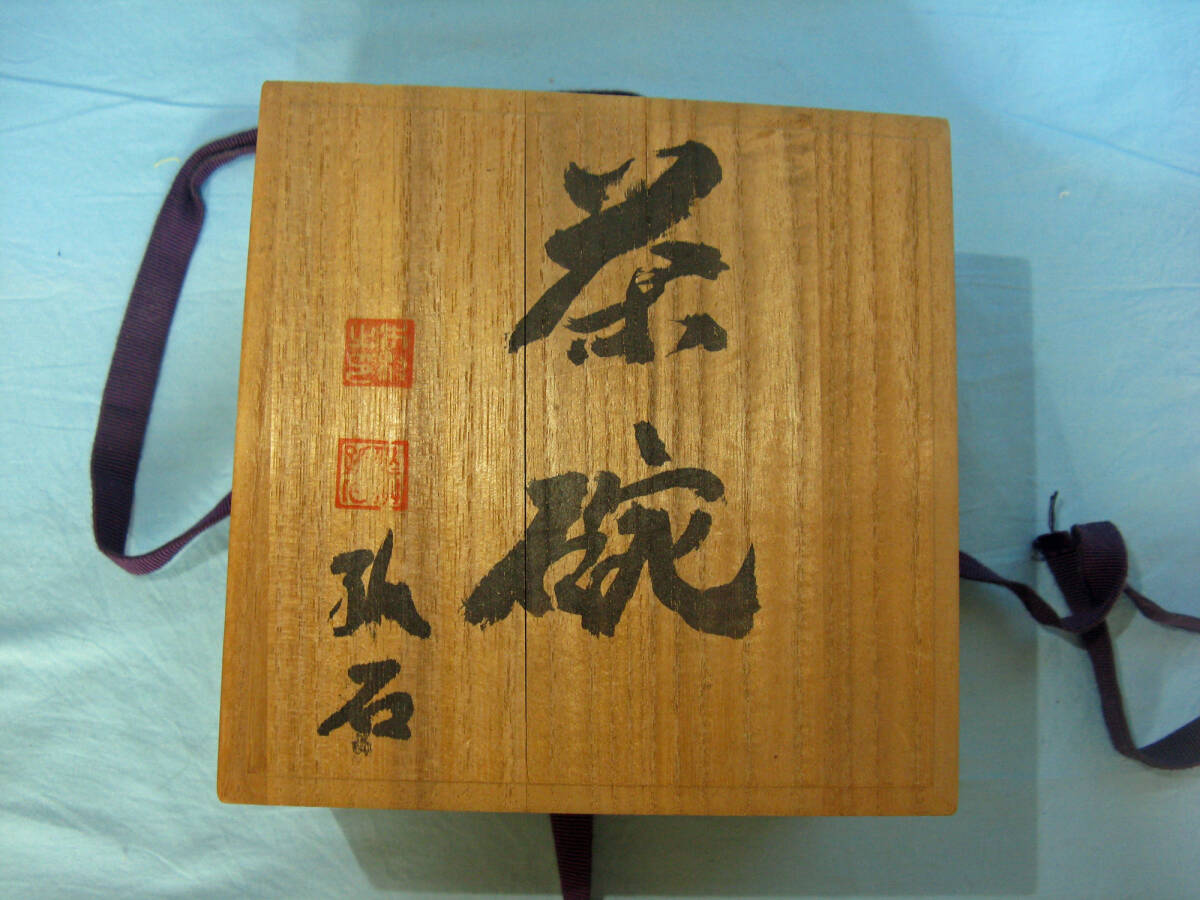 茶碗
弘石